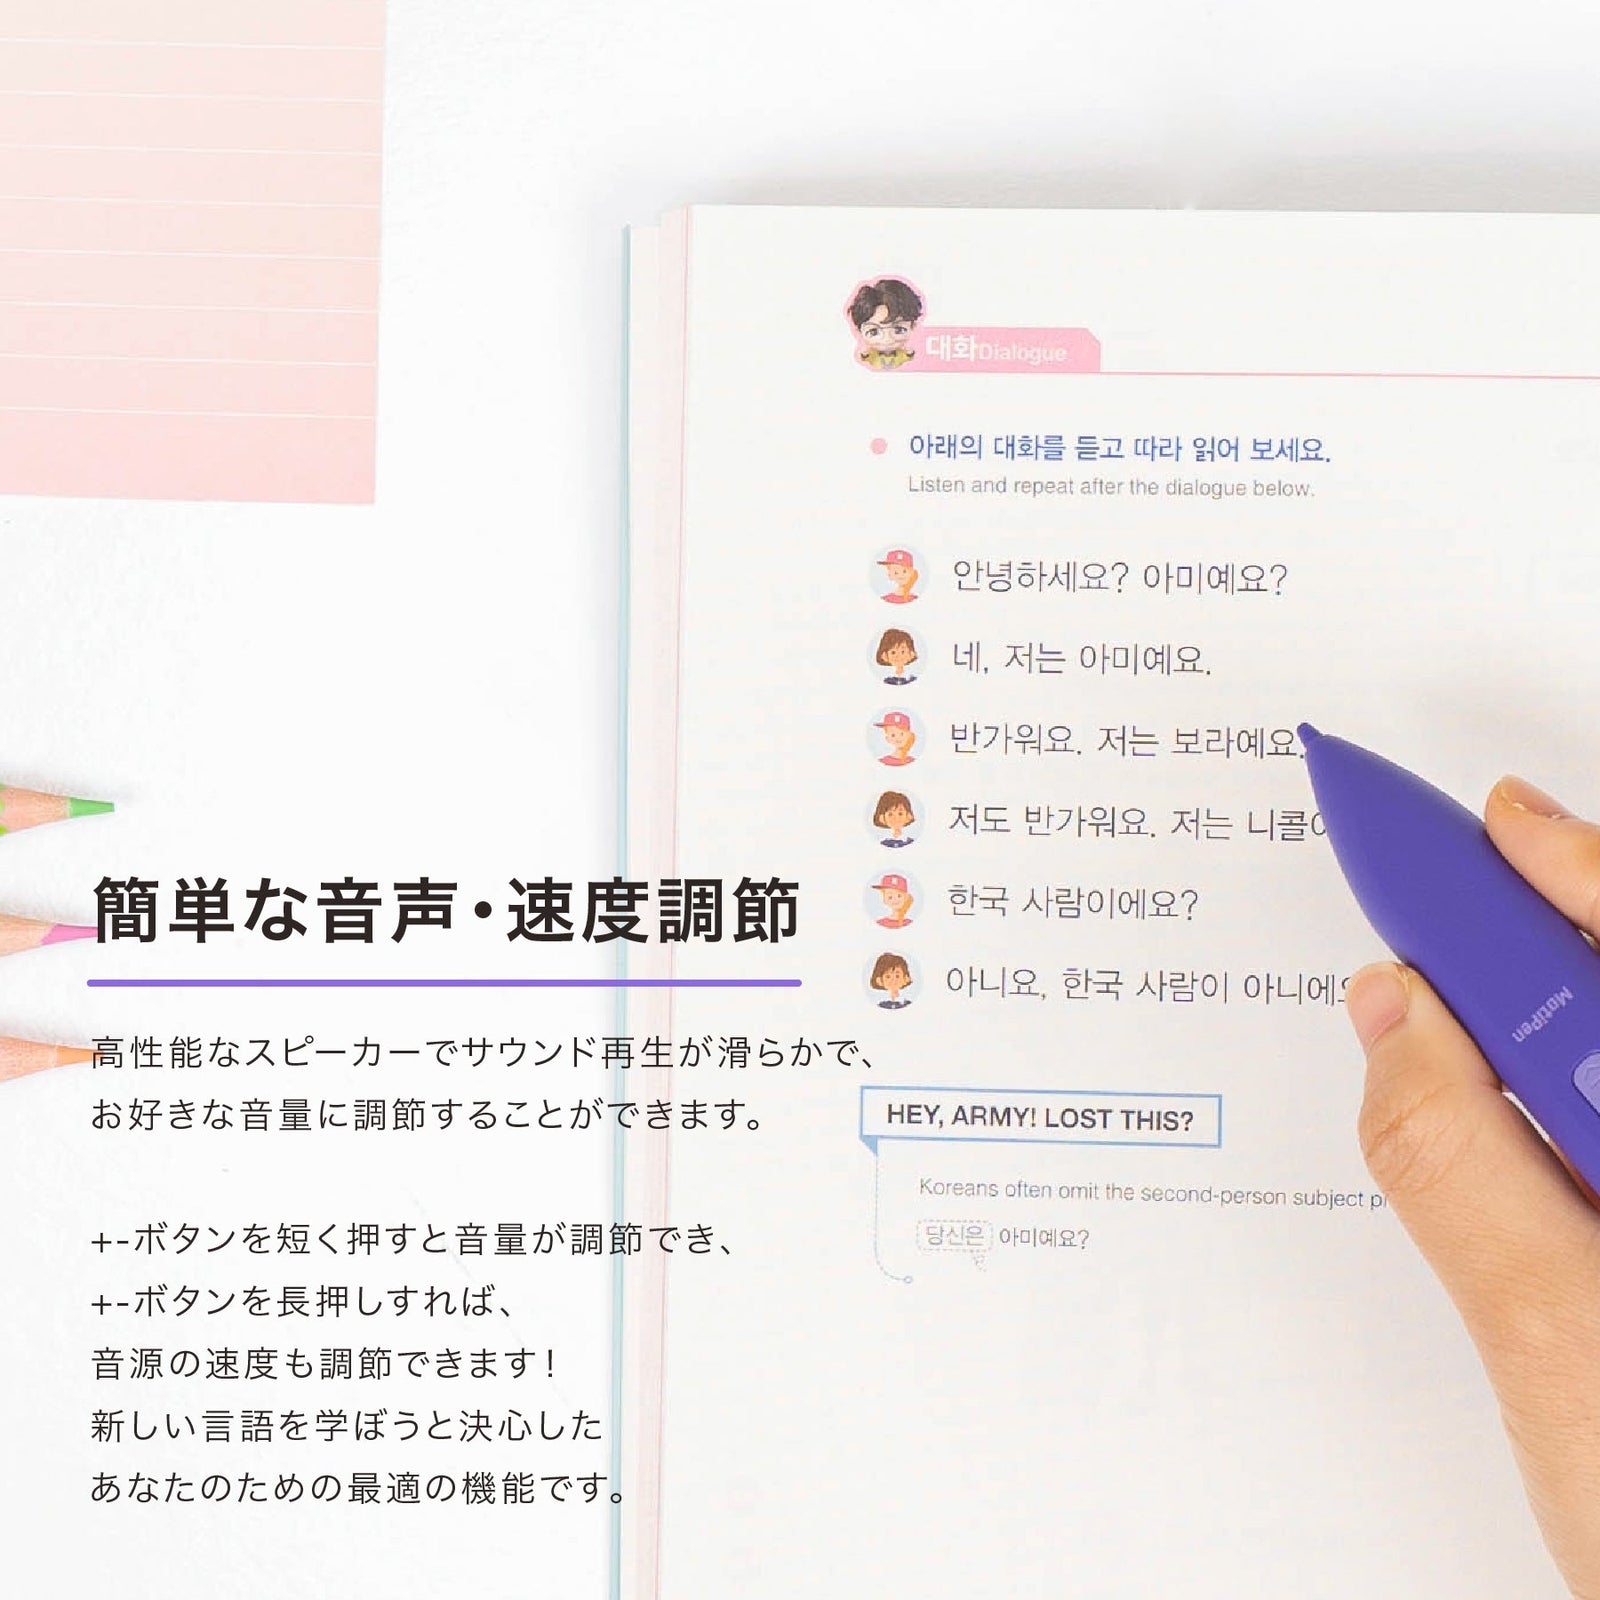 대화 Dialogue
아래의 대화를 듣고 따라 읽어 보세요.
Listen and repeat after the dialogue below.
안녕하세요? 아미예요?
네, 저는 아미예요.
반가워요. 저는 보라예요.
저도 반가워요. 저는 니콜
한국 사람이에요?
아니요, 한국 사람이 아니에요
HEY, ARMY! LOST THIS?
Koreans often omit the second-person subject
당신은 아미예요?
MotiPen
簡単な音声・速度調節
高性能なスピーカーでサウンド再生が滑らかで、
お好きな音量に調節することができます。
+-ボタンを短く押すと音量が調節でき、
+-ボタンを長押しすれば、
音源の速度も調節できます!
新しい言語を学ぼうと決心した
あなたのための最適の機能です。